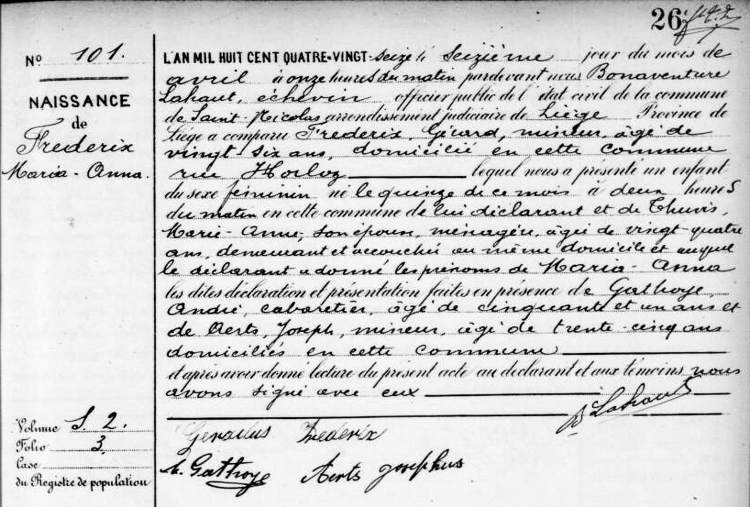 26
No 101.
NAISSANCE
de
Frederix
Maria-Anna.
L'AN MIL HUIT CENT QUATRE-VINGT-seize le seizième jour du mois de
avril à onze heures du matin pardevant nous Bonaventure
Lahaut, échevin officier public de l'état civil de la commune
de Saint-Nicolas arrondissement judiciaire de Liège Province de
Liège a comparu Frederix, Gérard, mineur, âgé de
vingt six ans, domicilié en cette commune
rue Horloz lequel nous a présenté un enfant
du sexe féminin né le quinze de ce mois à deux heures
du matin en cette commune de lui déclarant et de Thuvis,
Marie-Anne, son épouse, ménagère, âgée de vingt-quatre
ans, demeurant et accouchée au même domicile et auquel
le déclarant a donné les prénoms de Maria-Anna
les dites déclaration et présentation faites en présence de Gathoye,
André, cabaretier, âgé de cinquante et un ans et
de Aerts, Joseph, mineur, âgé de trente-cinq ans
domiciliés en cette commune
et après avoir donné lecture du présent acte au déclarant et aux témoins, nous
avons signé avec eux
B Lahaut
Gerardus Frederix
A. Gathoye Aerts Josephus
Volume S. 2.
Folio 3
Case
du Registre de population